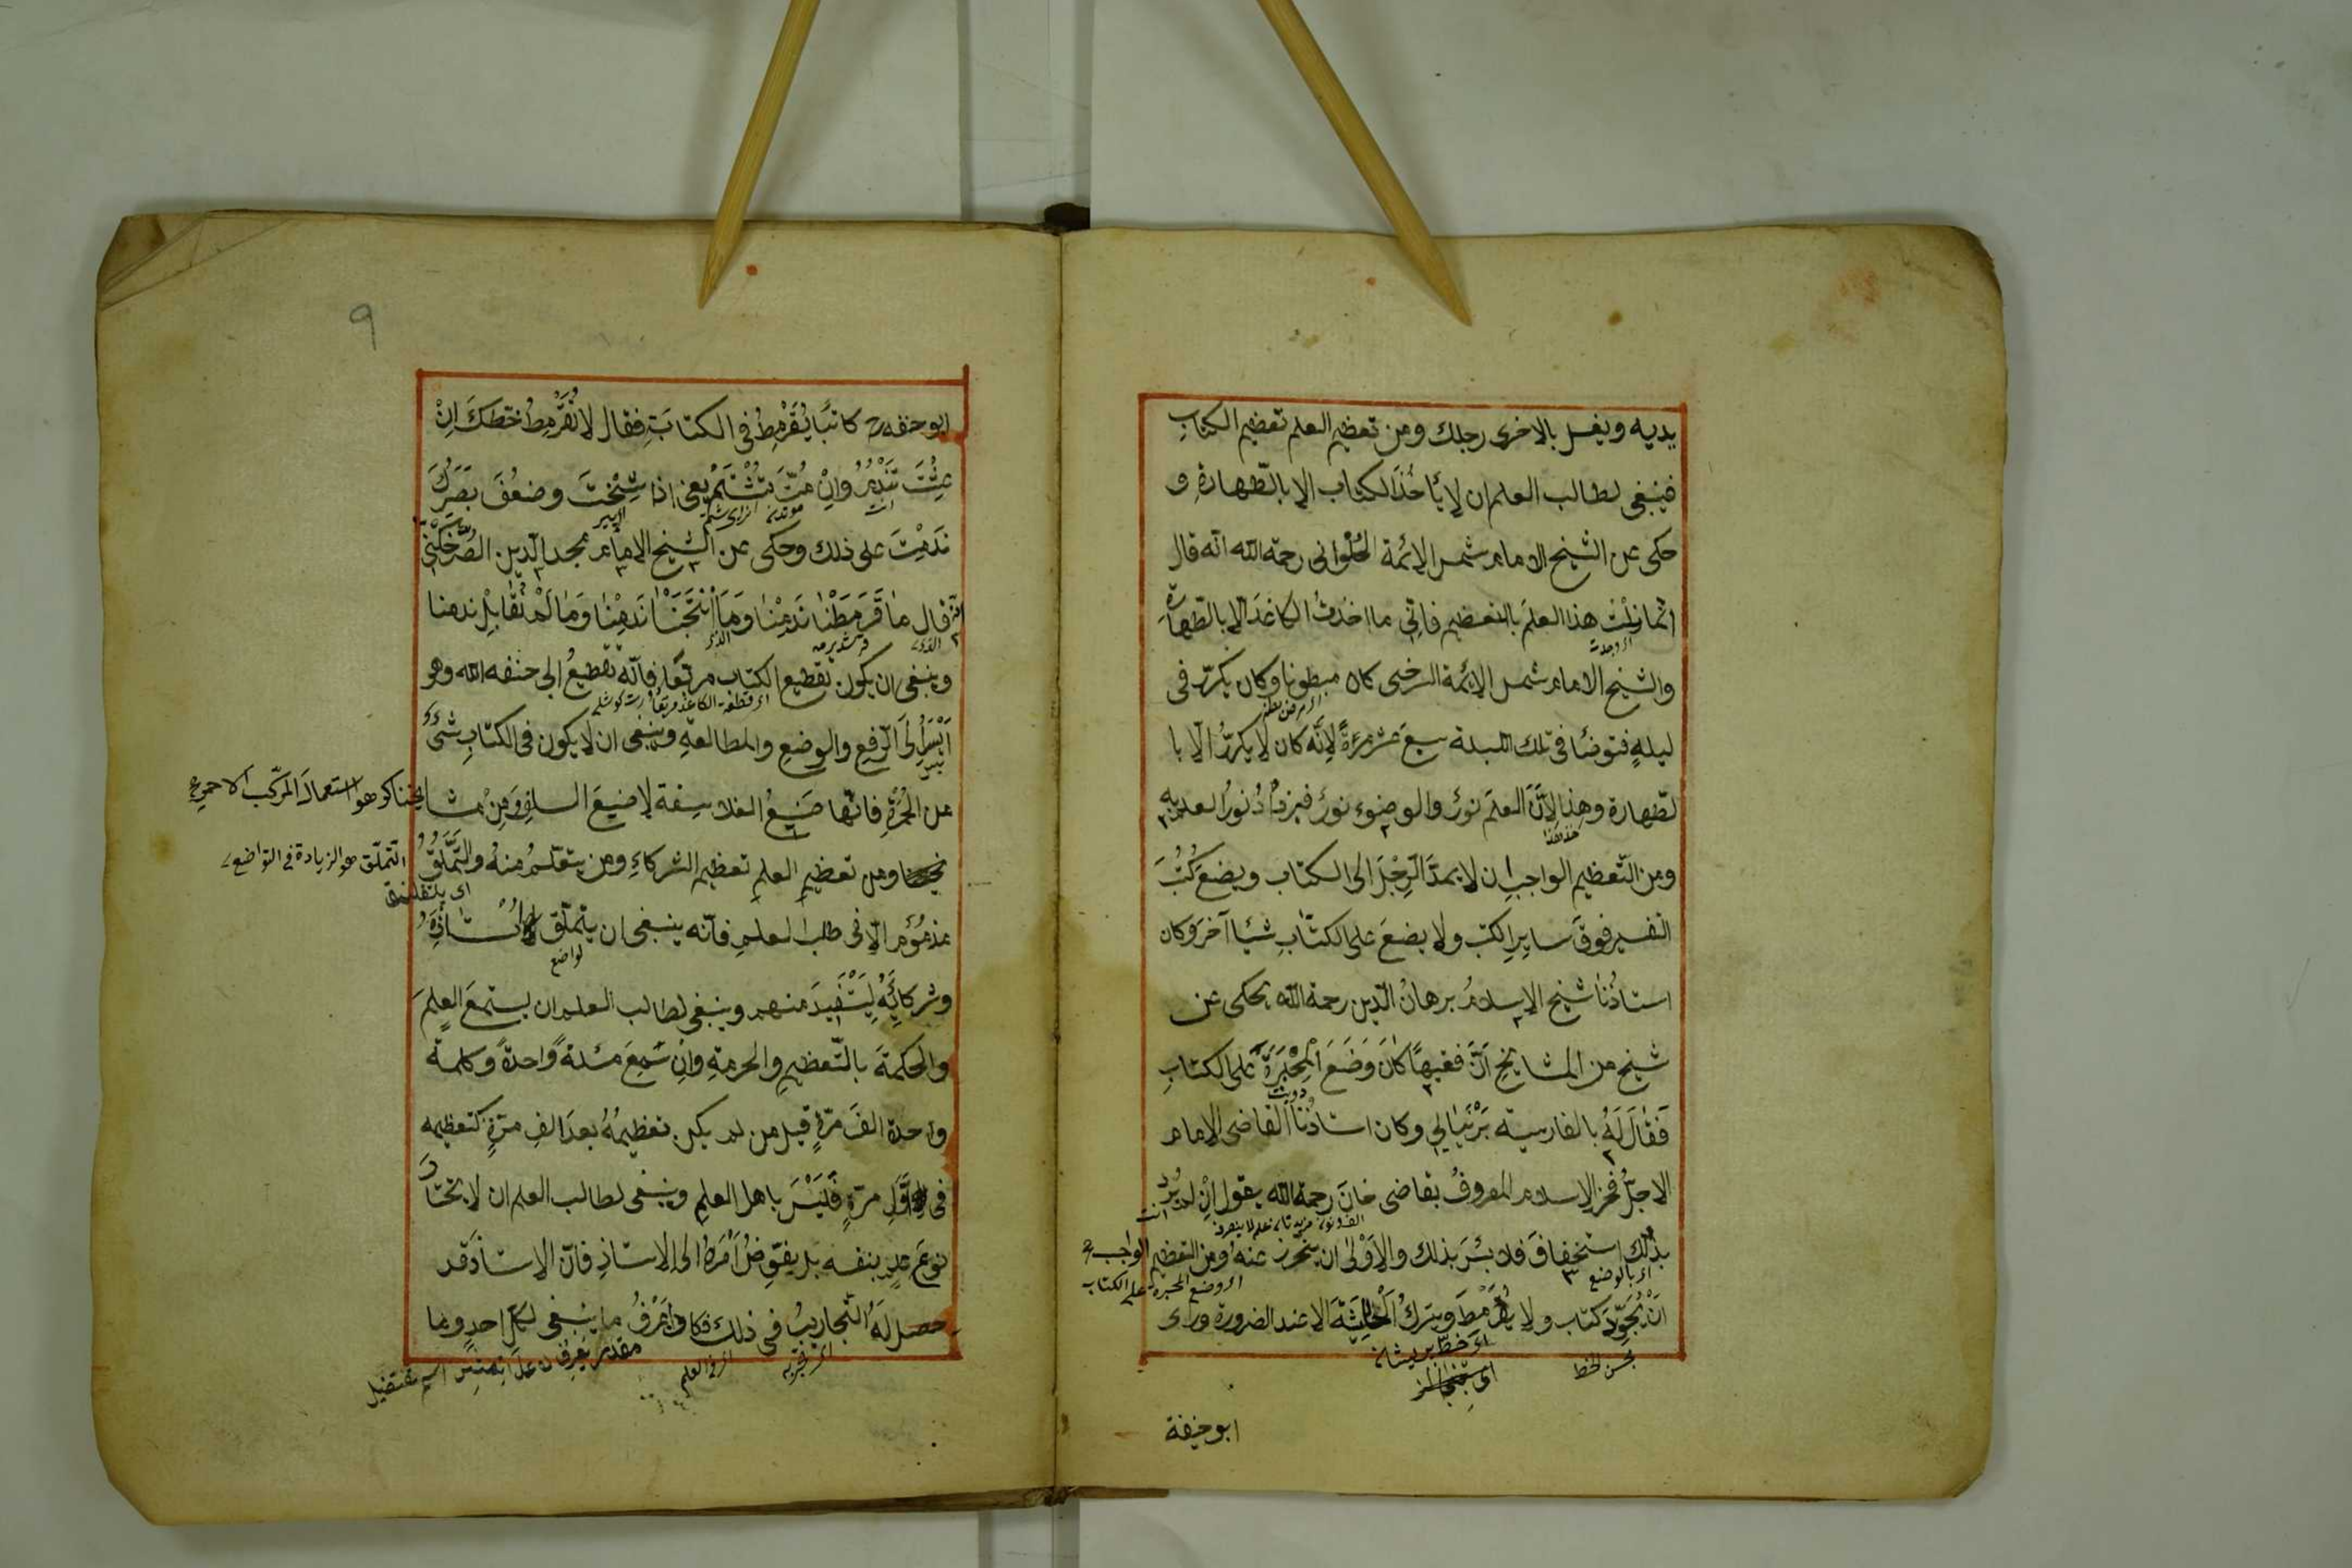 يديه ويغسل بالاخرى رجلك ومن تعظيم العلم تعظيم الكتاب
فينبغى لطالب العلم ان لا يأخُذَ الكتاب الا بالطّهارةِ و
حكى عن الشيخ الامام شمس الائمة الحُلْوانى رحمة الله انّه قال
انّما نِلْتُ هذا العلمَ بالتعظيم فانّى ما اخذتُ الكاغَدَ الّا بالطّهارة
اى وجدت
والشيخ الامام شمس الائمّة السرخسى كان مبطونا وكان يكرّر فى
ليلةٍ فتوضّأ فى تلك الليلة سبعَ عشر مرّةً لانّه كان لا يكرّرُ الّا با
لطّهارة وهذا لانَّ العلمَ نورٌ والوضوء نورٌ فيزدادُ نورُ العلم به
ومن التّعظيم الواجب ان لا يمدَّ الرِّجْلَ الى الكتاب ويضع كُتُبَ
التفسير فوقَ سايرِ الكتب ولا يضعَ على الكتابِ شيئا آخرَ وكان
استاذُنا شيخ الاسلامُ برهانُ الدّين رحمة الله يحكى عن
شيخ من المشايخِ اَنَّ فقيهًا كانَ وَضَعَ الْمِحْبَرَةَ على الكتابِ
دويت
فَقَالَ لَهُ بالفارسية بَرْنَيَابِي وكان استاذُنَا القاضى الامام
الاجلُّ فخر الاسلام المعروفُ بقاضى خانَ رحمة الله يقول اِنْ لم يُرِد
بذلك استخفافَ فلا بئسَ بذلك والاَوْلى ان يتحرز عنه ومن التعظيم الواجب
اى بالوضع
اى وضع المحبرة على الكتاب
اَنْ يُجَوِّدَ كتاب ولا يُقَرْمِطَ ويتركُ الْحَاشِيَةَ الا عند الضرورة ورأى
بحسن الخط
ابو حنيفة
٩
ابو حنفه كاتبًا يُقَرْمِطُ فى الكتابَةِ فقال لا تُقَرْمِطْ خطكَ اِنْ
عِشْتَ تَنْدَمْ وَاِنْ مُتَّ تُشْتَمْ يعنى اذا شِخْتَ وضعُفَ بَصَرُكَ
نَدِمْتَ على ذلك وحكى عن الشيخ الامام مجد الدّين الصَّرْخَكَتى
انّه قال ما قَرْمَطْنا نَدِمْنا وَمَا اْنْتَخَبْنا نَدِمْنا وَما لَمْ نُقابِلْ ندمنا
وينبغى ان يكون تقطيع الكتاب مربّعًا فانّه تقطيعُ ابى حنفه الله وهو
اَيْسَرُ اِلَى الرّفعِ والوضعِ والمطالعةِ وينبغى ان لا يكون فى الكتابِ شىءٌ
من الحُمْرَةِ فانّها صَنِيعُ الفلاسِفة لا صنيعَ السلفِ وَمِنْ مشا
يخنا كرهوا استعمالَ المركّب الاحمر
ومن تعظيمِ العلمِ تعظيم الشركاءِ ومن يتعلّمُ منهُ والتَّمَلُّقُ
التّملّق هو الزيادة فى التواضع
مذمُومٌ الّا فى طلب العلمِ فانّه ينبغى ان يتملّق لاُسْتاذِهِ
تواضع
وشركائِهِ لِيَسْتَفيدَ منهم وينبغى لطالب العلم ان يستمعَ العِلمَ
والحكمةَ بالتّعظيمِ والحرمةِ واِن سَمِعَ مسئلةً واحدةً وكلمة
واحدة الفَ مرّةٍ قيل من لم يكن تعظيمُهُ بعدَ الفِ مرّةٍ كتعظيمه
فى اَوّلِ مرّةٍ فَلَيْسَ باهل العلمِ وينبغى لطالب العلم ان لا يختارَ
نوعَ علمٍ بنفسه بل يفوّضُ اَمْرَهُ الى الاستاذِ فانّ الاستاذَ قد
حصل لهُ التّجاربُ فى ذلك فكان اَعْرَفُ ما ينبغى لكلّ احدٍ وما
اى تجربه
اى فى العلم